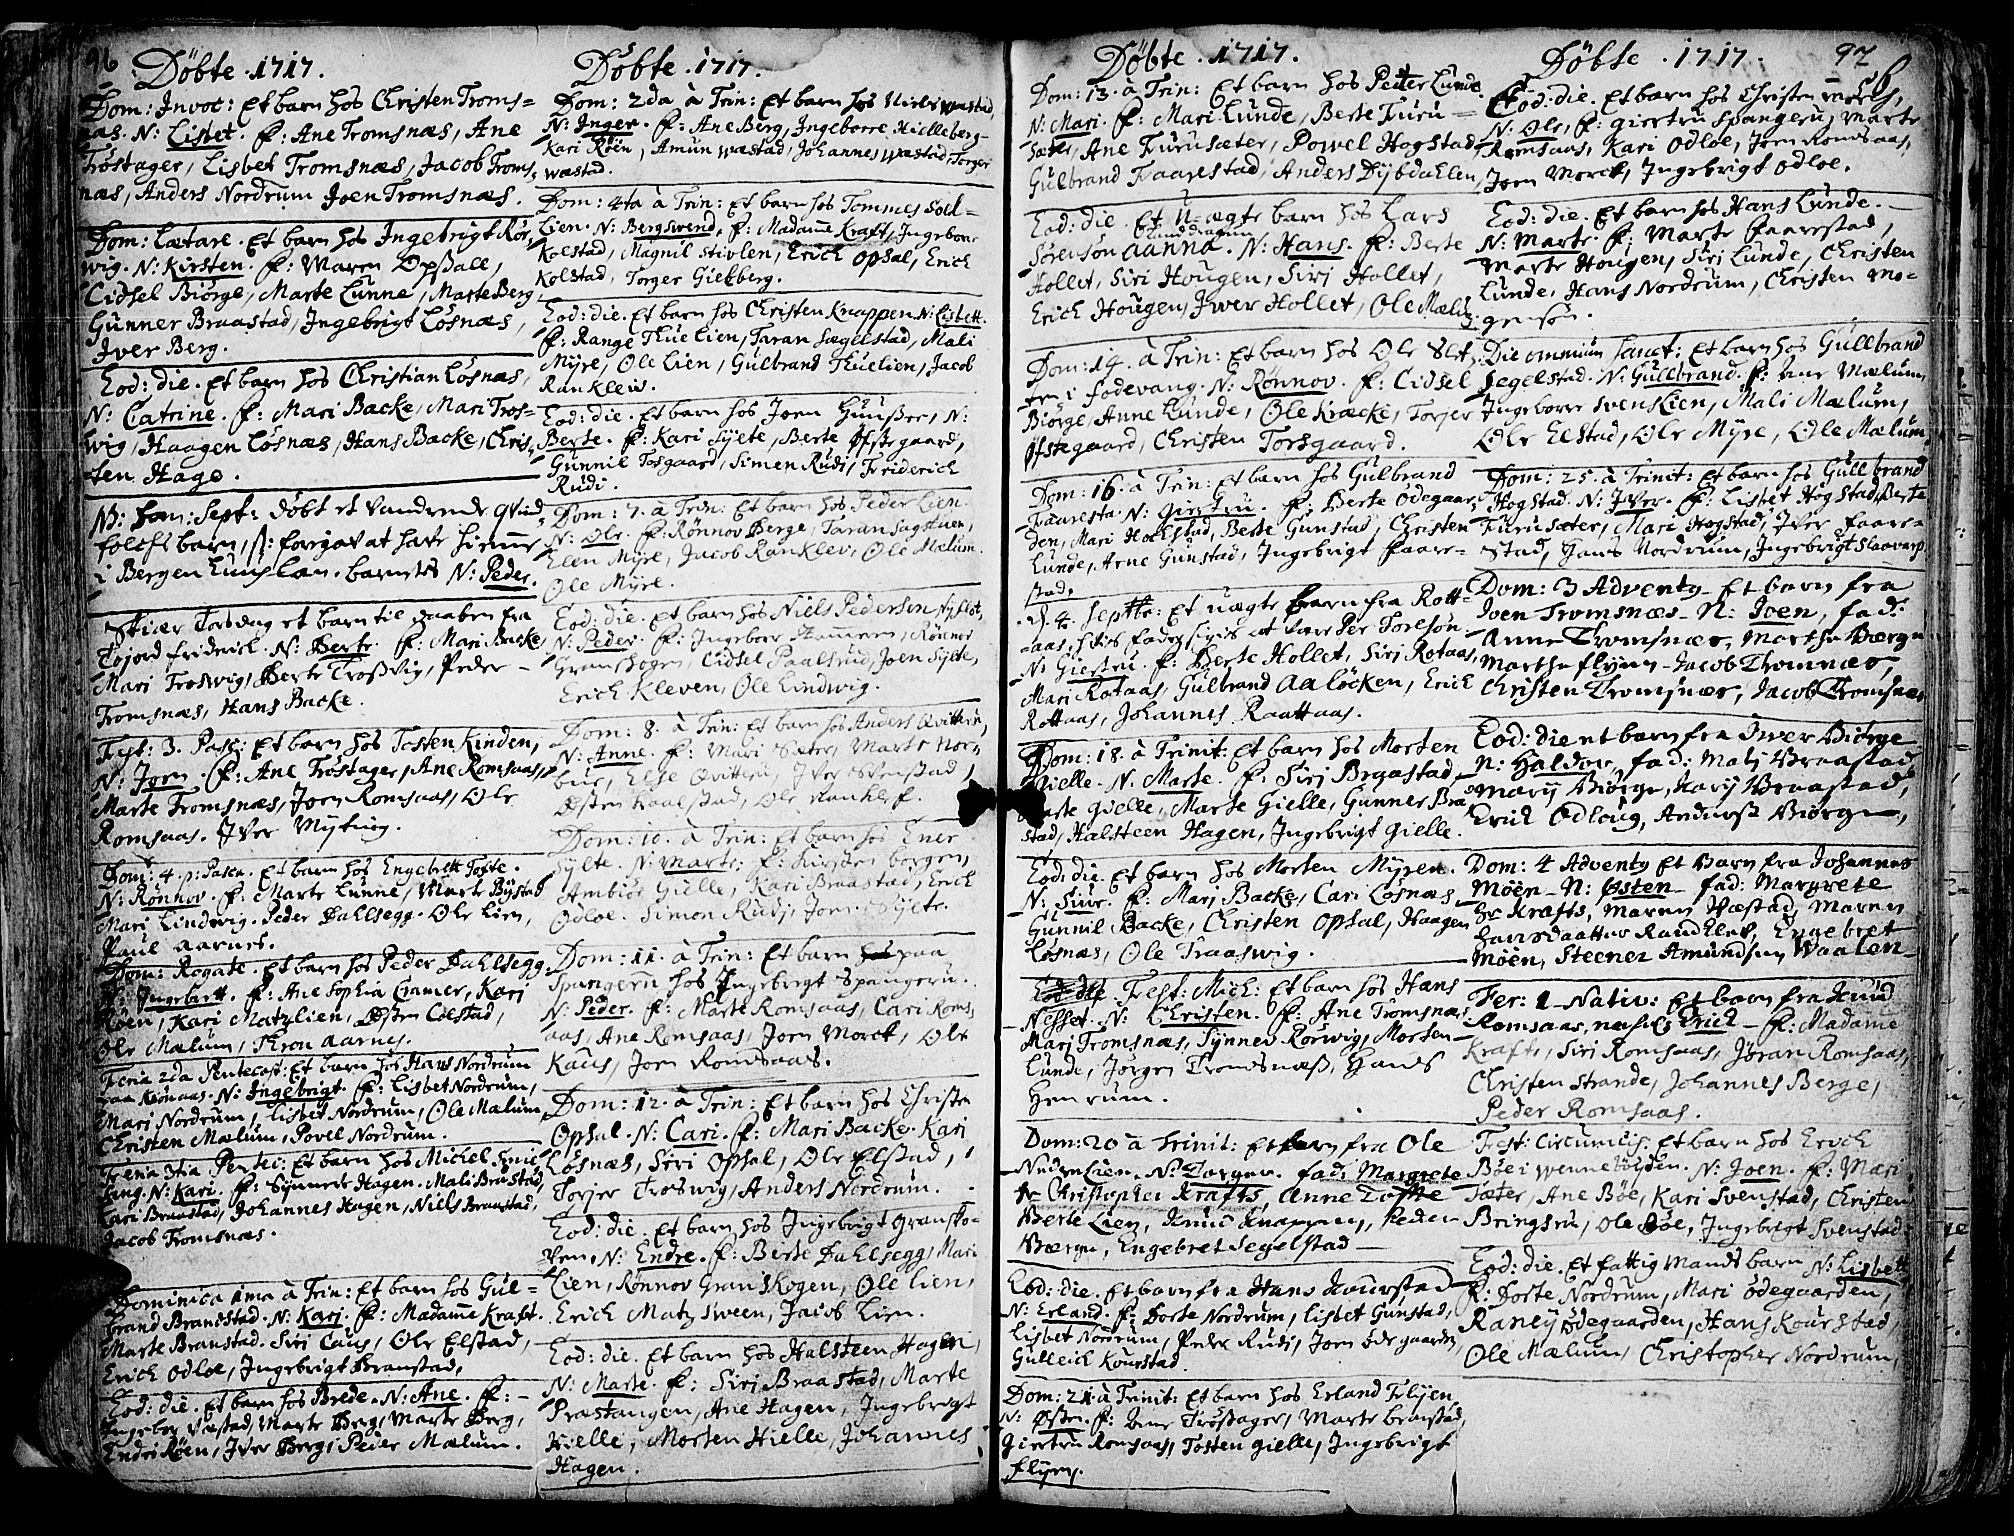 96 Döbte. 1717.
Dom: Invoc: Et barn hos Christen Troms=
næs. N: Lisbet. f: Ane Tromsnæs, Ane
Tröstager, Lisbet Tromsnæs, Jacob Troms,
næs, Anders Nordrum Joen Tromsnæs.
Dom: Lætare. Et barn hos Ingebrigt Rör,
wig. N: Kirsten. f: Maren Opsall,
Cidsel Biörge, Marte Lunne, Marte Berg
Gunner Braastad, Ingebrigt Lösnæs,
Iver Berg.
Eod: die. Et barn hos Christian Lösnæs,
N: Catrine. f: Mari Backe, Mari Tros=
wig, Haagen Lösnæs, Hans Backe, Chris,
ten Hage.
NB: Dom: Sept: döbt et vandrende qvind,
folchs barn, forgav at have hiemme
i Bergenhuus Læn. barnets N: Peder.
Skiær Torsdag et barn til daaben fra
Tojord Friderich. N: Berte. f: Mari Backe
Mari Troswig, Berte Trosswig, Peder
Tromsnæs, Hans Backe.
Fest: 3. Pasc: Et barn hos Tosten Kinden,
N: Jorn. f: Ane Tröstager, Ane Romsaas,
Marte Tromsnæs, Jorn Romsaas, Ole
Romsaas. Iver Myting.
Dom: 4. p: Pasca. Et barn hos Engebrett Tofte.
N: Rönnov. f: Marte Lunne, Marte Bystad
Mari Lindwig. Peder Dahlsegg. Ole Lien,
Paul Aarnes.
Dom: Rogate. Et barn hos Peder Dahlsegg
N: Ingebrett. f: Ane Sophia Cramer, Kari
Röen, Kari Matzlien, Østen Colstad,
Ole Mælum, Thron Aarnes.
Feria 2da Pentecost: Et barn hos Hans Nordrum
N: Ingebrigt. f: Lisbet Nordrum,
Mari Nordrum, Lisbet Nordrum, Ole Mælum,
Christen Mælum, Povel Nordrum.
Feria 3tia Pentec: Et barn hos Michel
N: Kari. f: Synnove Hagen. Mali Braastad,
Kari Braastad, Johannes Hagen, Niels Braastad,
Jacob Tromsnæs.
Dominica 1ma à Trin: Et barn hos Gul=
brand Brandstad. N: Kari. f: Madame Kraft.
Marte Branstad. Siri Caus, Ole Elstad,
Erich Odloe, Ingebrigt Branstad,
Eod: die. Et barn hos Brede. N: Ane. f:
Ingebor Væstad, Marte Berg, Marte Berg,
Endre Röen, Iver Berg, Peder Mælum.
Döbte. 1717.
Dom: 2da à Trin: Et barn hos Niels Wæstad
N: Inger. f: Ane Berg, Ingeborre Hielleberg
Kari Röen, Amun Wæstad, Johannes Wæstad, Torger
Wæstad.
Dom: 4ta à Trin: Et barn hos Tommes Soel=
Lien. N: Bergswend. f: Madame Kraft, Ingeborr
Kolstad, Magnil Stivlen, Erich Opsal, Erich
Kolstad, Torger Gielberg.
Eod: die. Et barn hos Christen Knappen N: Lisbett.
f: Range Thuelien, Taran Segelstad, Mali
Myre, Ole Lien, Gulbrand Thuelien, Jacob
Ranklev.
Eod: die. Et barn hos Jorn Huuser, N:
Berte. f: Kari Sylte, Berte Ofstegaard,
Gunnil Torsgaard, Simen Rudi, Friderich
Rudi.
Dom: 7. à Trin: Et barn hos Peder Lien.
N: Ole. f: Rönnov Berge, Taran Sagstuen,
Elen Myre, Jacob Ranklev, Ole Mælum.
Ole Myre.
Eod: die. Et barn hos Niels Pedersen
N: Peder. f: Ingeborr Rönnev
Granskogen, Cidsel Paalsrud, Joen Sylte,
Erich Kleven, Ole Lindwig.
Dom: 8. à Trin: Et barn hos Anders Qvittern,
N: Anne. f: Mari Sæter, Marte Nor,
Else Qvittern, Iver Svenstad,
Østen Ole Ranklef.
Dom: 10. à Trin: Et barn hos Ener
Sylte. N: Marte. f: Kirsten Borgen,
Ambiör Gielle, Kari Braastad, Erich
Odloe. Simon Rudi, Jorn Sylte.
Dom: 11. à Trin: Et barn paa
Spangeru hos Ingebrigt Spangeru.
N: Peder. f: Marte Romsaas, Cari Roms,
aas, Ane Romsaas, Jorn Morck, Ole
Kaus, Jorn Romsaas.
Dom: 12. à Trin: Et barn hos Christen
Opsal. N: Cari. f: Mari Backe. Kari
Lösnæs, Siri Opsal, Ole Elstad,
Torjer Troswig, Anders Nordrum.
Eod: die. Et barn hos Ingebrigt Gransko=
ven. N: Endre. f: Berte Dahlsegg, Mari
Lien, Rönnov Granskogen, Ole Lien,
Erich Matzsween, Jacob Lien.
Eod: die. Et barn hos Halsteen Hagen,
N: Marte. f: Siri Braastad, Marte
Præstangen, Ane Hagen, Ingebrigt
Hielle, Morten Hielle, Johannes
Hagen.
Döbte. 1717.
Dom: 13. à Trin: Et barn hos Peder Lunde
N: Mari. f: Mari Lunde, Berte Furu=
sæter, Ane Furusæter, Powel Hogstad,
Gulbrand Faarestad, Anders Dybdahlen,
Eod: die. Et U-ægte barn hos Lars
Sörensön Aanna. N: Hans. f: Berte
Hollet, Siri Hougen, Siri Hollet,
Erich Hougen, Iwer Hollet, Ole Mælum
Dom: 14. à Trin: Et barn hos Ole Slet,
ten i Fodevang. N: Rönnov. f: Cidsel
Biörge, Anne Lunde, Ole Kræcke, Torjer
Ofstegaard, Christen Torsgaard.
Dom: 16. à Trin: Et barn hos Gulbrand
Faaresta. N: Giertru. f: Berte Odegaar,
den, Mari Hoelstad, Berte Gunstad, Christen
Lunde, Arne Gunstad, Ingebrigt Faare=
stad.
D. 4. Septbr: Et uægte barn fra Rott=
aas, hvis fader sigis at være Per Toresön
N: Giertru. f: Berte Hollet, Siri Rotaas,
Mari Rotaas, Gulbrand Aalöcken, Erich
Rottaas, Johannes Raattaas.
Dom: 18. à Trinit: Et barn hos Morten
Gielle. N: Marte. f: Siri Braastad,
Marte Gielle, Marte Gielle, Gunner Bra
stad, Halsteen Hagen, Ingebrigt Gielle.
Eod: die. Et barn hos Morten Myren.
N: Siur. f: Mari Backe, Cari Lösnæs
Gunnil Backe, Christen Opsal, Haagen
Lösnæs, Ole Traaswig.
Fest: Mich: Et barn hos Hans
Nesset. N: Christen. f: Ane Tromsnæs,
Mari Tromsnæs, Synnev Rörwig, Morten
Lunde, Jörgen Tromsnæss, Hans
Hemrum.
Dom: 20 à Trinit: Et barn fra Ole
Lien. N: Torger. fad: Margrete
hr Christopher Krafts, Anne Tofte
Berte Lien, Knud Knappen, Peder
Bærge, Engebret Segelstad
Eod: die. Et barn fra Hans Kaurstad
N: Erland. f: Dorte Nordrum, Lisbet Gunstad,
Lisbet Nordrum, Peder Rudi, Jorn Ödegaarden,
Gulleich Kourstad.
Dom: 21. à Trinit: Et barn hos Erland Flyen,
N: Østen. f: Ane Tröstager, Marte Branstad,
Giertru Romsaas, Tosten Gielle, Ingebrigt
Flyen.
Döbte. 1717. 97
Eod: die. Et barn hos Christen
N: Ole, f: Giertru Spangeru, Marte
Romsaas, Kari Odloe, Jorn Romsaas,
Jorn Morck, Ingebrigt Odloe.
Eod: die. Et barn hos Hans Lunde.
N: Marte. f: Marte Faarestad,
Marte Hougen, Siri Lunde, Christen
Lunde, Hans Nordrum, Christen Mo=
gensön.
Die omnium Sanct: Et barn hos Gullbrand
Segelstad. N: Gullbrand. f: Ane Mælum,
Ingeborr Svenslien, Mali Mælum,
Ole Elstad, Ole Myre, Ole Mælum
Dom: 25. à Trinit: Et barn hos Gullbrand
Hogstad. N: Iver. f: Lisbet Hogstad, Berte
Furusæter, Mari Hogstad, Iver Faare=
stad, Hans Nordrum, Ingebrigt Slaavarp
Dom: 3 Adventy Et barn fra
Joen Tromsnæs N: Joen, fad:
Anne Tromsnæs, Marthe Bærge
Marthe Flyen Jacob Thomnæs,
Christen Tromsnæs, Jacob Tromsnæs
Eod: die et barn fra Iver Biörge
N: Haldov, fad: Mali Braastad
Marij Biörge, Karij Braastad,
Erich Odloug, Anders Biörge,
Dom: 4 Adventy Et Barn fra Johannes
Möen N: Østen fad: Margrete
hr Krafts, Maren Væstad, Maren
Hansdaatter Randklev, Engebret
Möen, Steener Amundsen Waalen
Fer: 1 Nativ: Et barn fra Knud
Romsaas, Erich f: Madame
Krafts, Siri Romsaas, Jöran Romsaas,
Christen Strande, Johannes Berge,
Peder Romsaas.
Fest: Circumcis: Et barn hos Erich
Böe i N: Joen. f: Mari
Sæter, Ane Böe, Kari Svenstad, Christen
Bringsru, Ole Böe, Ingebrigt Svenstad.
Eod: die. Et fattig mands barn N: Lisbett
f: Dorte Nordrum, Mari Ödegaarden,
Raney Ödegaarden, Hans Kourstad,
Ole Mælum, Christopher Nordrum,